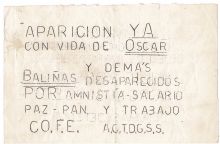 APARICION YA
CON VIDA DE OSCAR
Y DEMÁS
BALIÑAS DESAPARECIDOS
POR AMNISTIA-SALARIO
PAZ-PAN Y TRABAJO
CO.F.E. A.C.T.D.G.S.S.